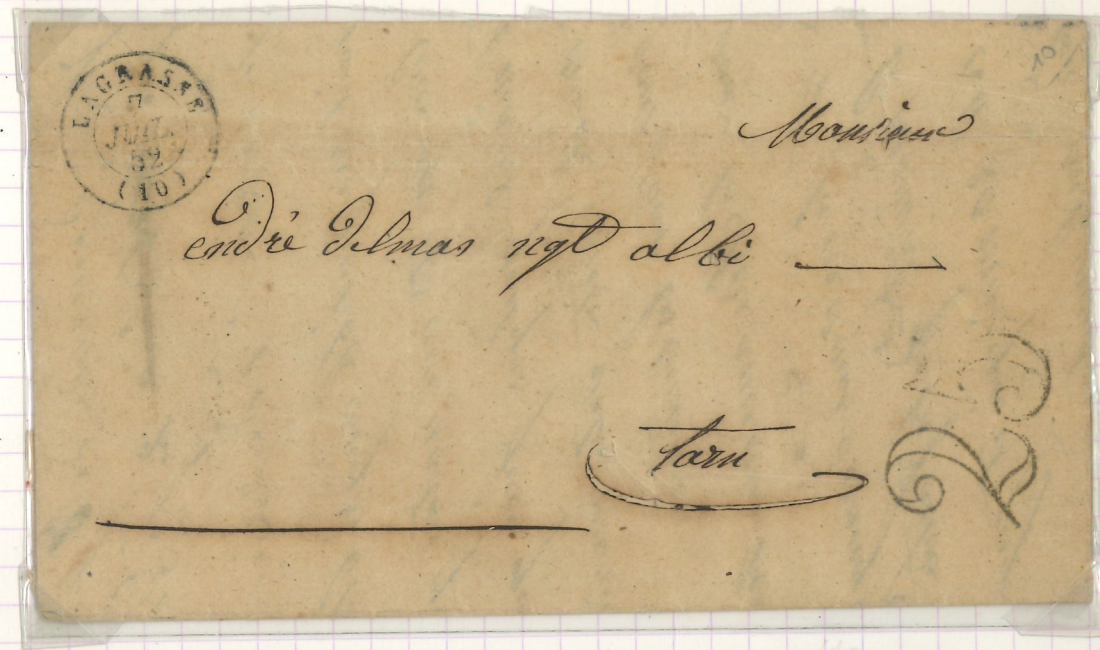 LAGRASSE
7
JUIL.
52
(10)
10
Monsieur
endré delmas ngt albi
tarn
25